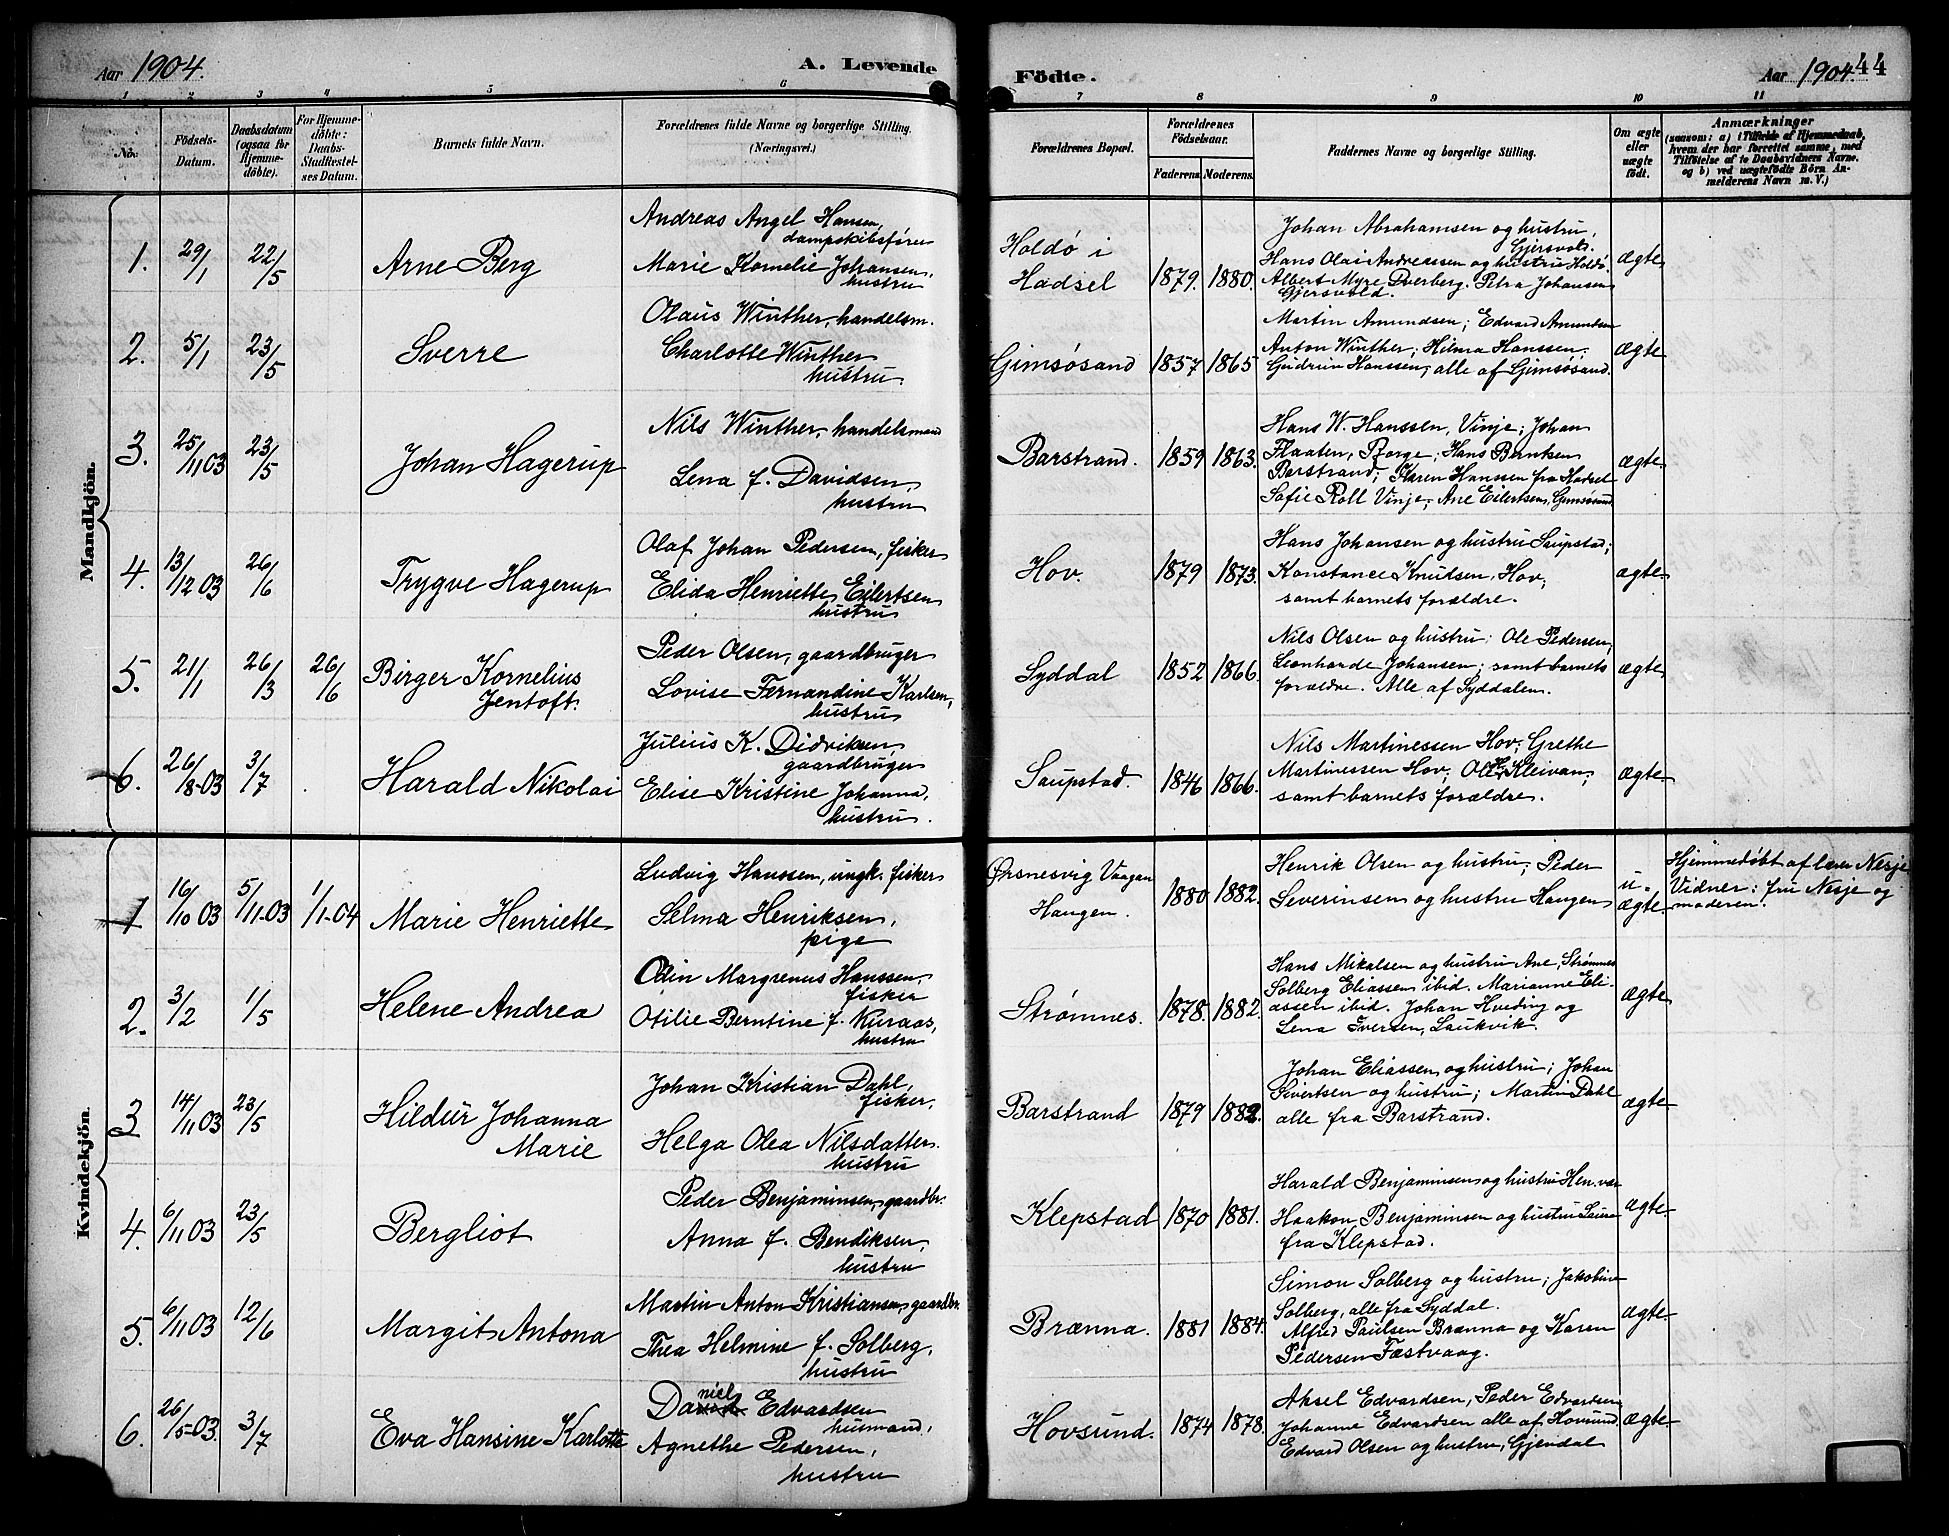 Aar 1904.
A. Levende
Födte.
Aar 1904. 44
1 2 3 4 5 6 7 8 9 10 11
No.
Födsels-
Datum.
Daabsdatum
(ogsaa for
Hjemme-
döbte).
For Hjemme-
döbte:
Daabs-
Stadfæstel-
ses Datum.
Barnets fulde Navn.
Forældrenes fulde Navne og borgerlige Stilling.
(Næringsvei.)
Forældrenes Bopæl.
Forældrenes
Födselsaar.
Faderens Moderens.
Faddernes Navne og borgerlige Stilling.
Om ægte
eller
uægte
födt.
Anmærkninger
(saasom: a) i Tilfælde af Hjemmedaab,
hvem der har forrettet samme, med
Tilföielse af to Daabsvidners Navne.
og b) ved uægtefödte Börn An-
melderens Navn m. V.)
Mandkjön.
1. 29/1 22/5 Arne Berg
Andreas Angel Hansen,
dampskibsfører
Marie Kornelie Johansen,
hustru
Holdø i
Hadsel
1879. 1880.
Johan Abrahamsen og hustru,
Gjersvold.
Hans Olai Andreassen og hustru Holdö.
Albert Myre Dverberg. Petra Johansen
Gjersvold.
ægte
2. 5/1 23/5 Sverre
Olaus Winther, handelsm.
Charlotte Winther
hustru.
Gimsøsand 1857 1865
Martin Amundsen; Edvard Amundsen
Anton Winther; Hilma Hanssen;
Gudrun Hanssen, alle af Gimsøsand.
ægte
3. 25/11 03 23/5 Johan Hagerup
Nils Winther, handelsmand
Lena f. Davidsen,
hustru
Barstrand. 1859 1863.
Hans W. Hanssen, Vinje; Johan
Flaaten, Borge; Hans Berntsen
Barstrand; Karen Hanssen fra Hadsel
Sofie Roll Vinje, Ane Eilertsen, Gimsøsand
ægte
4. 13/12 03 26/6 Trygve Hagerup
Olaf Johan Pedersen, fisker
Elida Henriette Eilertsen
hustru
Hov. 1879 1873.
Hans Johansen og hustru Saupstad;
Konstance Knudsen, Hov;
samt barnets forældre.
ægte
5. 21/1 26/3 26/6 Birger Kornelius
Jentoft.
Peder Olsen, gaardbruger
Lovise Fernandine Karlsen,
hustru
Syddal 1852 1866.
Nils Olsen og hustru; Ole Pedersen,
Leonharde Johansen; samt barnets
forældre. Alle af Syddalen.
ægte
6. 26/8-03 3/7 Harald Nikolai
Julius K. Didriksen,
gaardbruger
Elise Kristine Johanna,
hustru.
Saupstad. 1846 1866.
Nils Martinessen Hov; Grethe
Martinessen Hov; Ole H. Kleivan;
samt barnets forældre.
ægte
Kvindekjön.
1 16/10 03 5/11-03 1/1-04 Marie Henriette
Ludvig Hanssen, ungk. fisker
Selma Henriksen,
pige
Ørsnesvig Vaagan
Haugen.
1880 1882.
Henrik Olsen og hustru; Peder
Severinsen og hustru Haugen
u-
ægte.
Hjemmedøbt af lærer Nesje
Vidner: fru Nesje og
moderen.
2. 3/2 1/5 Helene Andrea
Odin Margrenus Hanssen,
fisker
Otilie Berntine f. Kuraas,
hustru
Strømnes. 1878. 1882.
Hans Mikalsen og hustru Ane, Strømnes
Solberg Eliassen ibid. Marianne Eli-
assen ibid. Johan Hveding og
Lena Iversen, Laukvik.
ægte
3 14/11 03 23/5 Hildur Johanna
Marie
Johan Kristian Dahl,
fisker,
Helga Olea Nilsdatter.
hustru
Barstrand 1879 1882.
Johan Eliassen og hustru; Johan
Sivertsen og hustru; Martin Dahl
alle fra Barstrand.
ægte
4. 6/11 03 23/5 Bergliot
Peder Benjaminsen, gaardbr.
Anna f. Bendiksen,
hustru
Klepstad 1870 1881.
Harald Benjaminsen og hustru
Haakon Benjaminsen og hustru
fra Klepstad.
ægte
5. 6/11 03 12/6 Margit Antona
Martin Anton Kristiansen, gaardbr.
Thea Helmine f. Solberg,
hustru
Brænna. 1881 1884.
Simon Solberg og hustru; Jakobine
Solberg, alle fra Syddal.
Alfred Paulsen Brænna og Karen
Pedersen Fæstvaag.
ægte
6. 26/5-03. 3/7 Eva Hansine Karlotte
Daniel Edvardsen
husmand,
Agnethe Pedersen,
hustru
Hovsund. 1874 1878.
Aksel Edvardsen, Peder Edvardsen
Johanne Edvardsen alle af Hovsund,
Edvard Olsen og hustru, Gjerdal
ægte